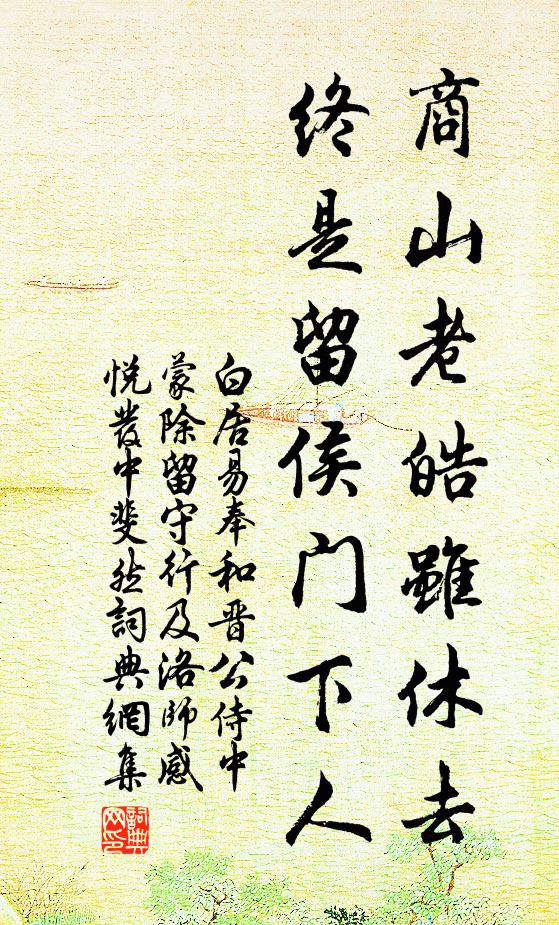 商山老皓雖休去
終是留侯门下人
白居易奉和晋公侍中
蒙除留守行及洛師感
悦發中斐然詞典網集
詞典网印